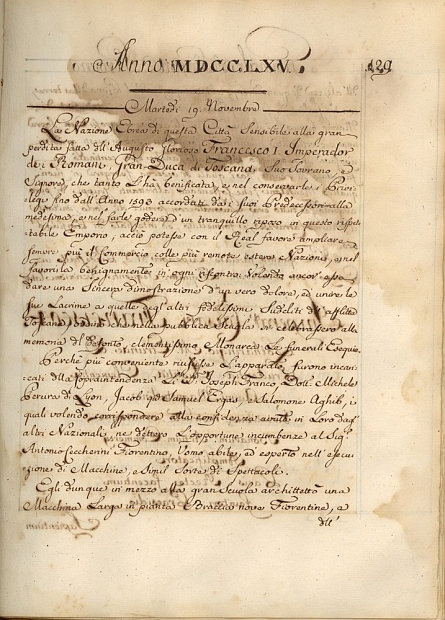 Anno MDCCLXV.
129
Martedì 19. Novembre
La Nazione Ebrea di questa Città Sensibile alla gran
perdita fatta dell' Augusto glorioso Francesco I Imperador
de' Romani, Gran-Duca di Toscana, Suo Sovrano, e
Signore, che tanto l'hà benificata, e nel conservarle i Privi-
legi fino dall' Anno 1593 accordati dai suoi Predecessori alla
medesima, e nel farle godere d'un tranquillo riposo in questo rispet-
tabile Emporio, acciò potesse con il Real favore ampliare
sempre più il Commercio colle più remote estere Nazioni, e nel
favorirla benignamente in ogni riscontro; Volendo ancor essa
dare una Sincera dimostrazione d'un vero dolore, ed unire le
sue Lacrime a quelle degl' altri fedelissimi Sudditi dell' afflitta
Toscana, che nella pubblica Scuola si celebrassero alla
memoria del defonto, clementissimo Monarca Le funerali Esequie.
Perchè più conveniente riuscisse L'apparato, furono incari-
cati della Sopraintendenza Li SS.ri Joseph Franco, Dott.e Michele
Pereira di Leon, Jacob q.m Samuel Ergas, e Salomone Aghib, i
quali volendo corrispondere alla confidenza avuta in Loro dagl'
altri Nazionali, ne dettero L'opportune incumbenze al Sig.r
Antonio Ceccherini Fiorentino, Uomo abile, ed esperto nell' esecu-
zione di Macchine, e Simil Sorte di Spettacoli.
Egli dunque in mezzo a d.a gran Scuola architettò una
Macchina Larga in pianta Braccia nove Fiorentine, e